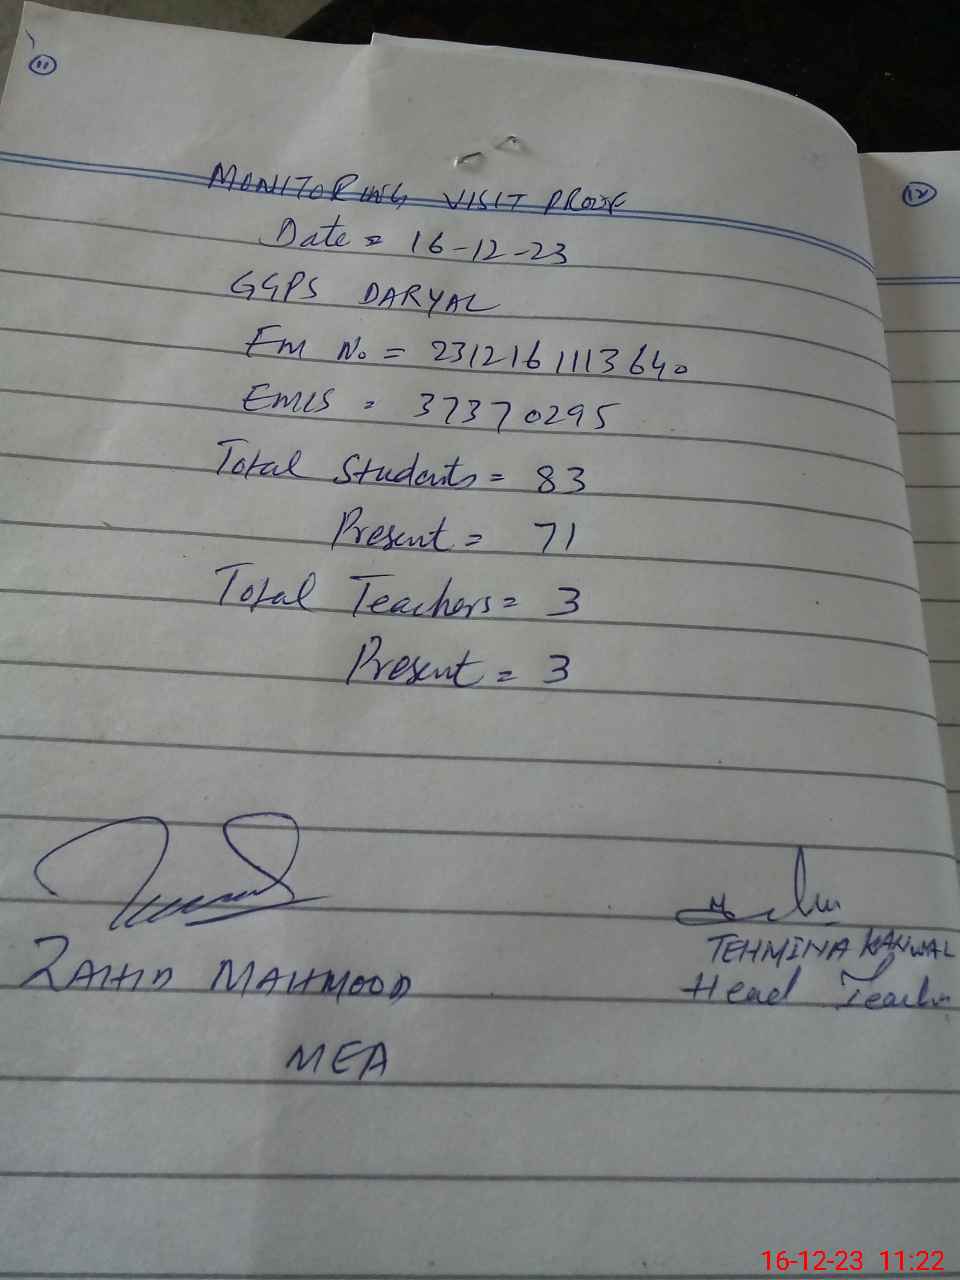 11
12
MONITORING VISIT PROOF
Date = 16-12-23
GGPS DARYAL
Em No. = 2312161113640
EMIS = 37370295
Total Students = 83
Present = 71
Total Teachers = 3
Present = 3
ZAHID MAHMOOD
MEA
TEHMINA KANWAL
Head Teacher
16-12-23 11:22